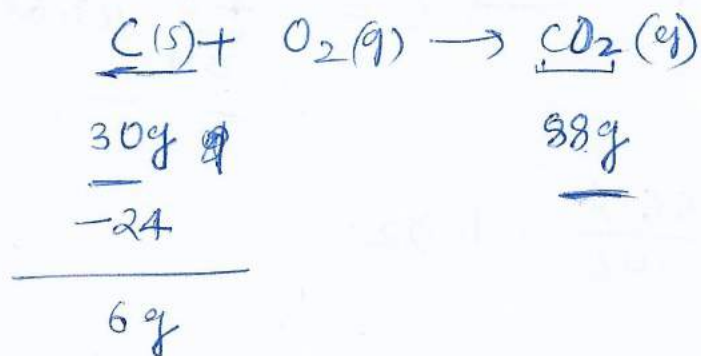 C(s) + O2(g) → CO2(g)
30g 88g
-24
6g